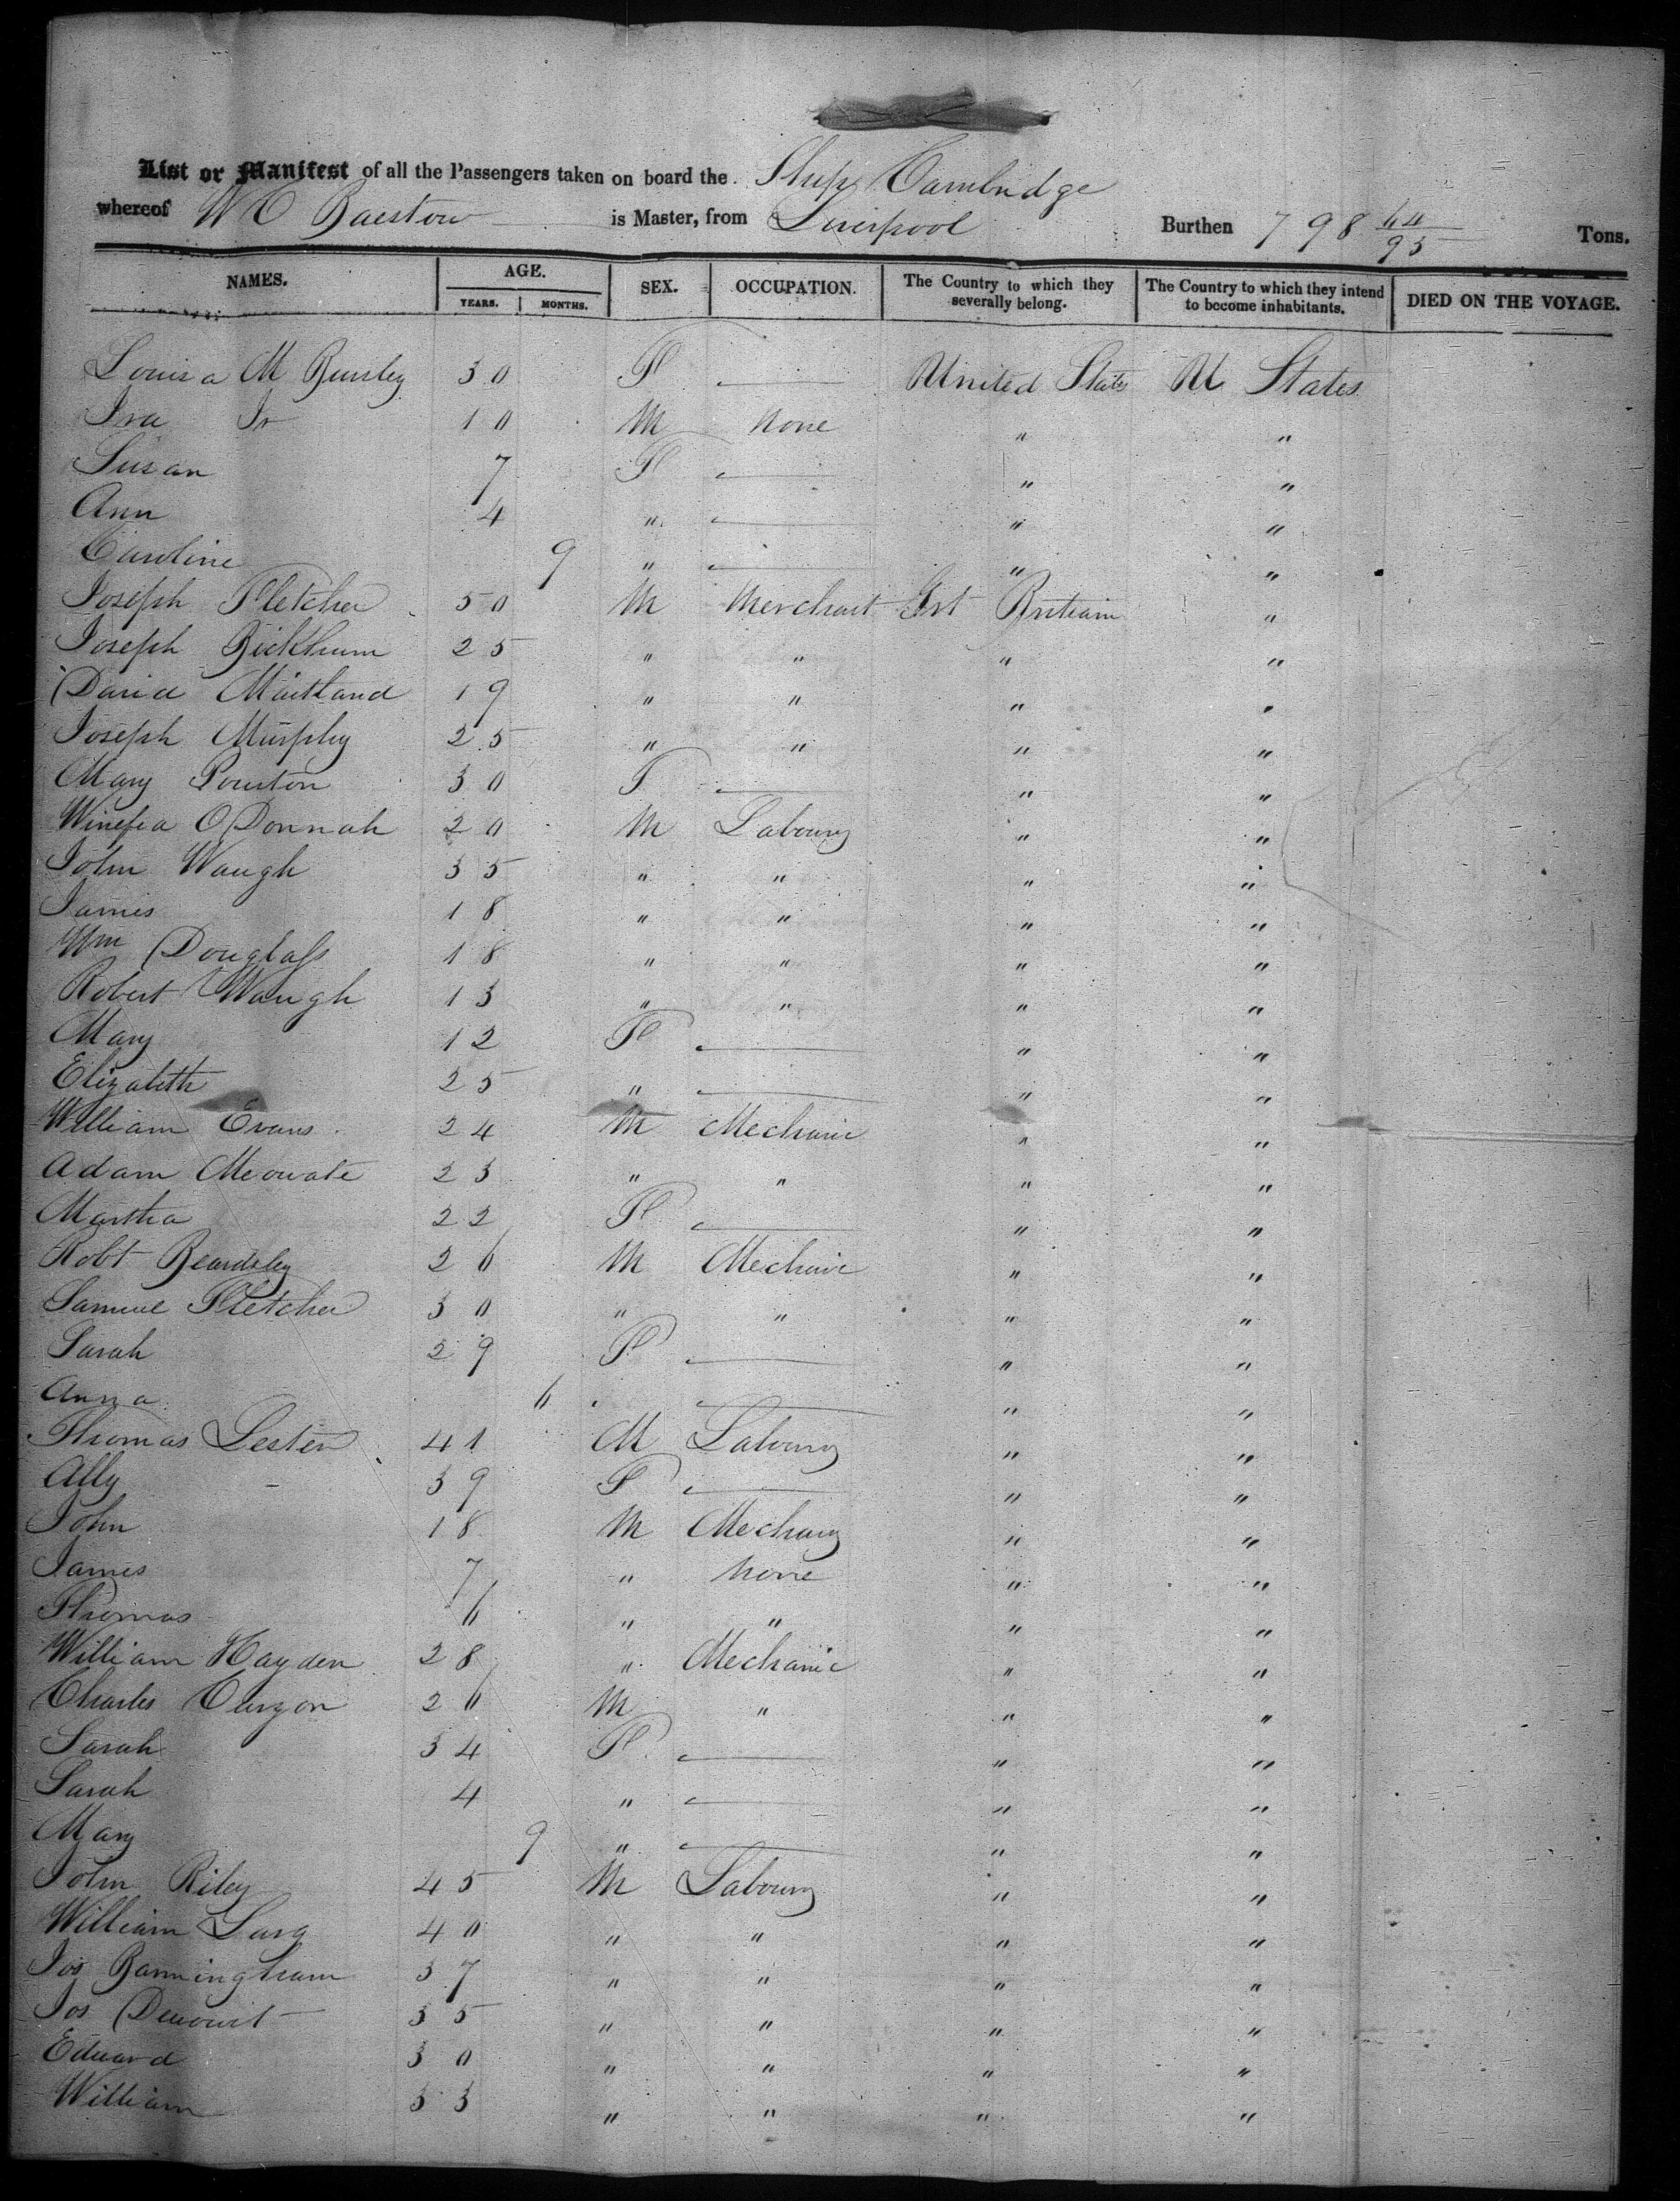 List or Manifest of all the Passengers taken on board the Ship Cambridge
whereof W C Barstow is Master, from Liverpool Burthen 798 64/95 Tons.
NAMES. AGE. SEX. OCCUPATION. The Country to which they severally belong. The Country to which they intend to become inhabitants. DIED ON THE VOYAGE.
YEARS. MONTHS.
Louisa M 30 F United States U States
Ira Jr 10 M None " "
Susan 7 F " "
Ann 4 " " "
Caroline 9 " " "
Joseph Fletcher 50 M Merchant Grt Britiain "
Joseph Bickhum 25 " " " "
David Maitland 19 " " " "
Joseph Murphy 25 " " " "
Mary 30 F " "
O Donnah 20 M Labourg " "
John Waugh 35 " " " "
James 18 " " " "
Wm Douglass 18 " " " "
Robert Waugh 13 " " " "
Mary 12 F " "
Elizabeth 25 " " "
William Evans 24 M Mechanic " "
Adam 23 " " " "
Martha 22 F " "
Robt Beardsley 26 M Mechanic " "
Samuel Fletcher 30 " " " "
Sarah 29 F " "
Anna 6 " " "
Thomas Lester 41 M Labourg " "
Ally 39 F " "
John 18 M Mechang " "
James 7 " None " "
Thomas 6 " " " "
William Hayden 28 " Mechanic " "
Charles Curzon 26 M " " "
Sarah 34 F " "
Sarah 4 " " "
Mary 9 " " "
John Riley 45 M Labourg " "
William 40 " " " "
Jos Banningham 37 " " " "
Jos 35 " " " "
Edward 30 " " " "
William 33 " " " "